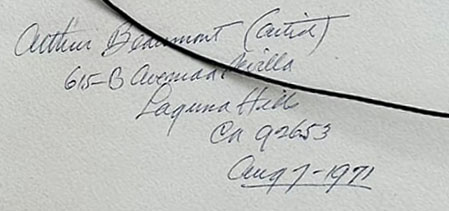 Arthur Beaumont (artist)
615-B Avenida Sevilla
Laguna Hills
Ca 92653
Aug 7-1971